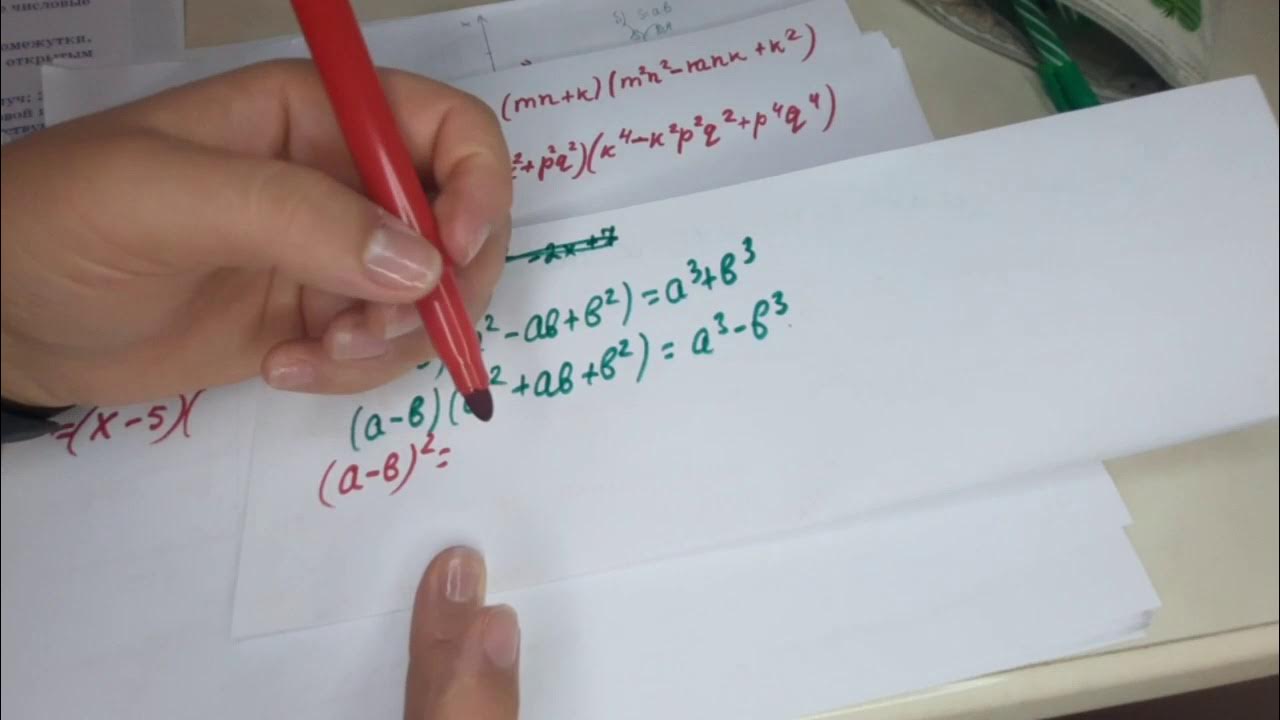 е числовые
омежутки,
открытым
(mn+k)(m²n²-mnk+k²)
²+p²q²)(k⁴-k²p²q²+p⁴q⁴)
-2x+7
² -ab+b²)=a³+b³
(a-b)( ²+ab+b²)=a³-b³
=(x-5)(
(a-b)²=